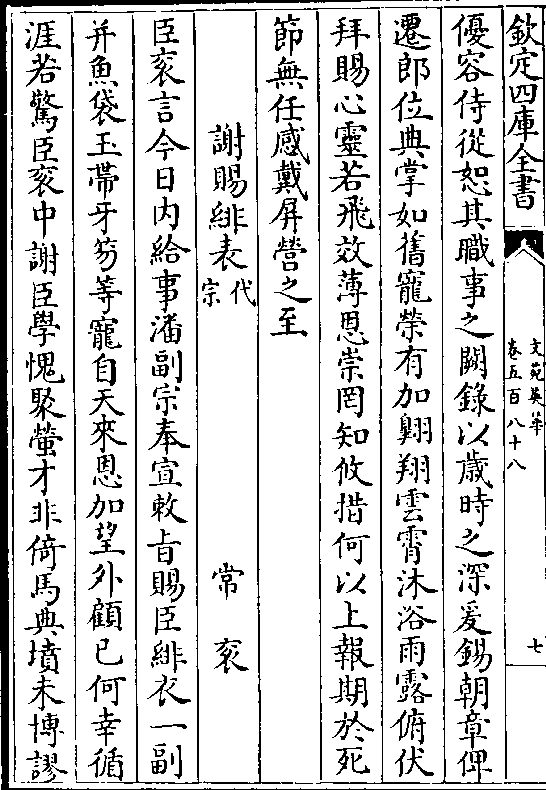 欽定四庫全書
文苑英華
卷五百八十八
七
優容侍從恕其職事之闕錄以歳時之深爰錫朝章俾
遷郎位典掌如舊寵榮有加翺翔雲霄沐浴雨露俯伏
拜賜心靈若飛效薄恩崇罔知攸措何以上報期於死
節無任感戴屏營之至
謝賜緋表代宗 常衮
臣衮言今日内給事潘副宗奉宣敕旨賜臣緋衣一副
并魚袋玉帶牙笏等寵自天來恩加望外顧已何幸循
涯若驚臣衮中謝臣學愧聚螢才非倚馬典墳未博謬